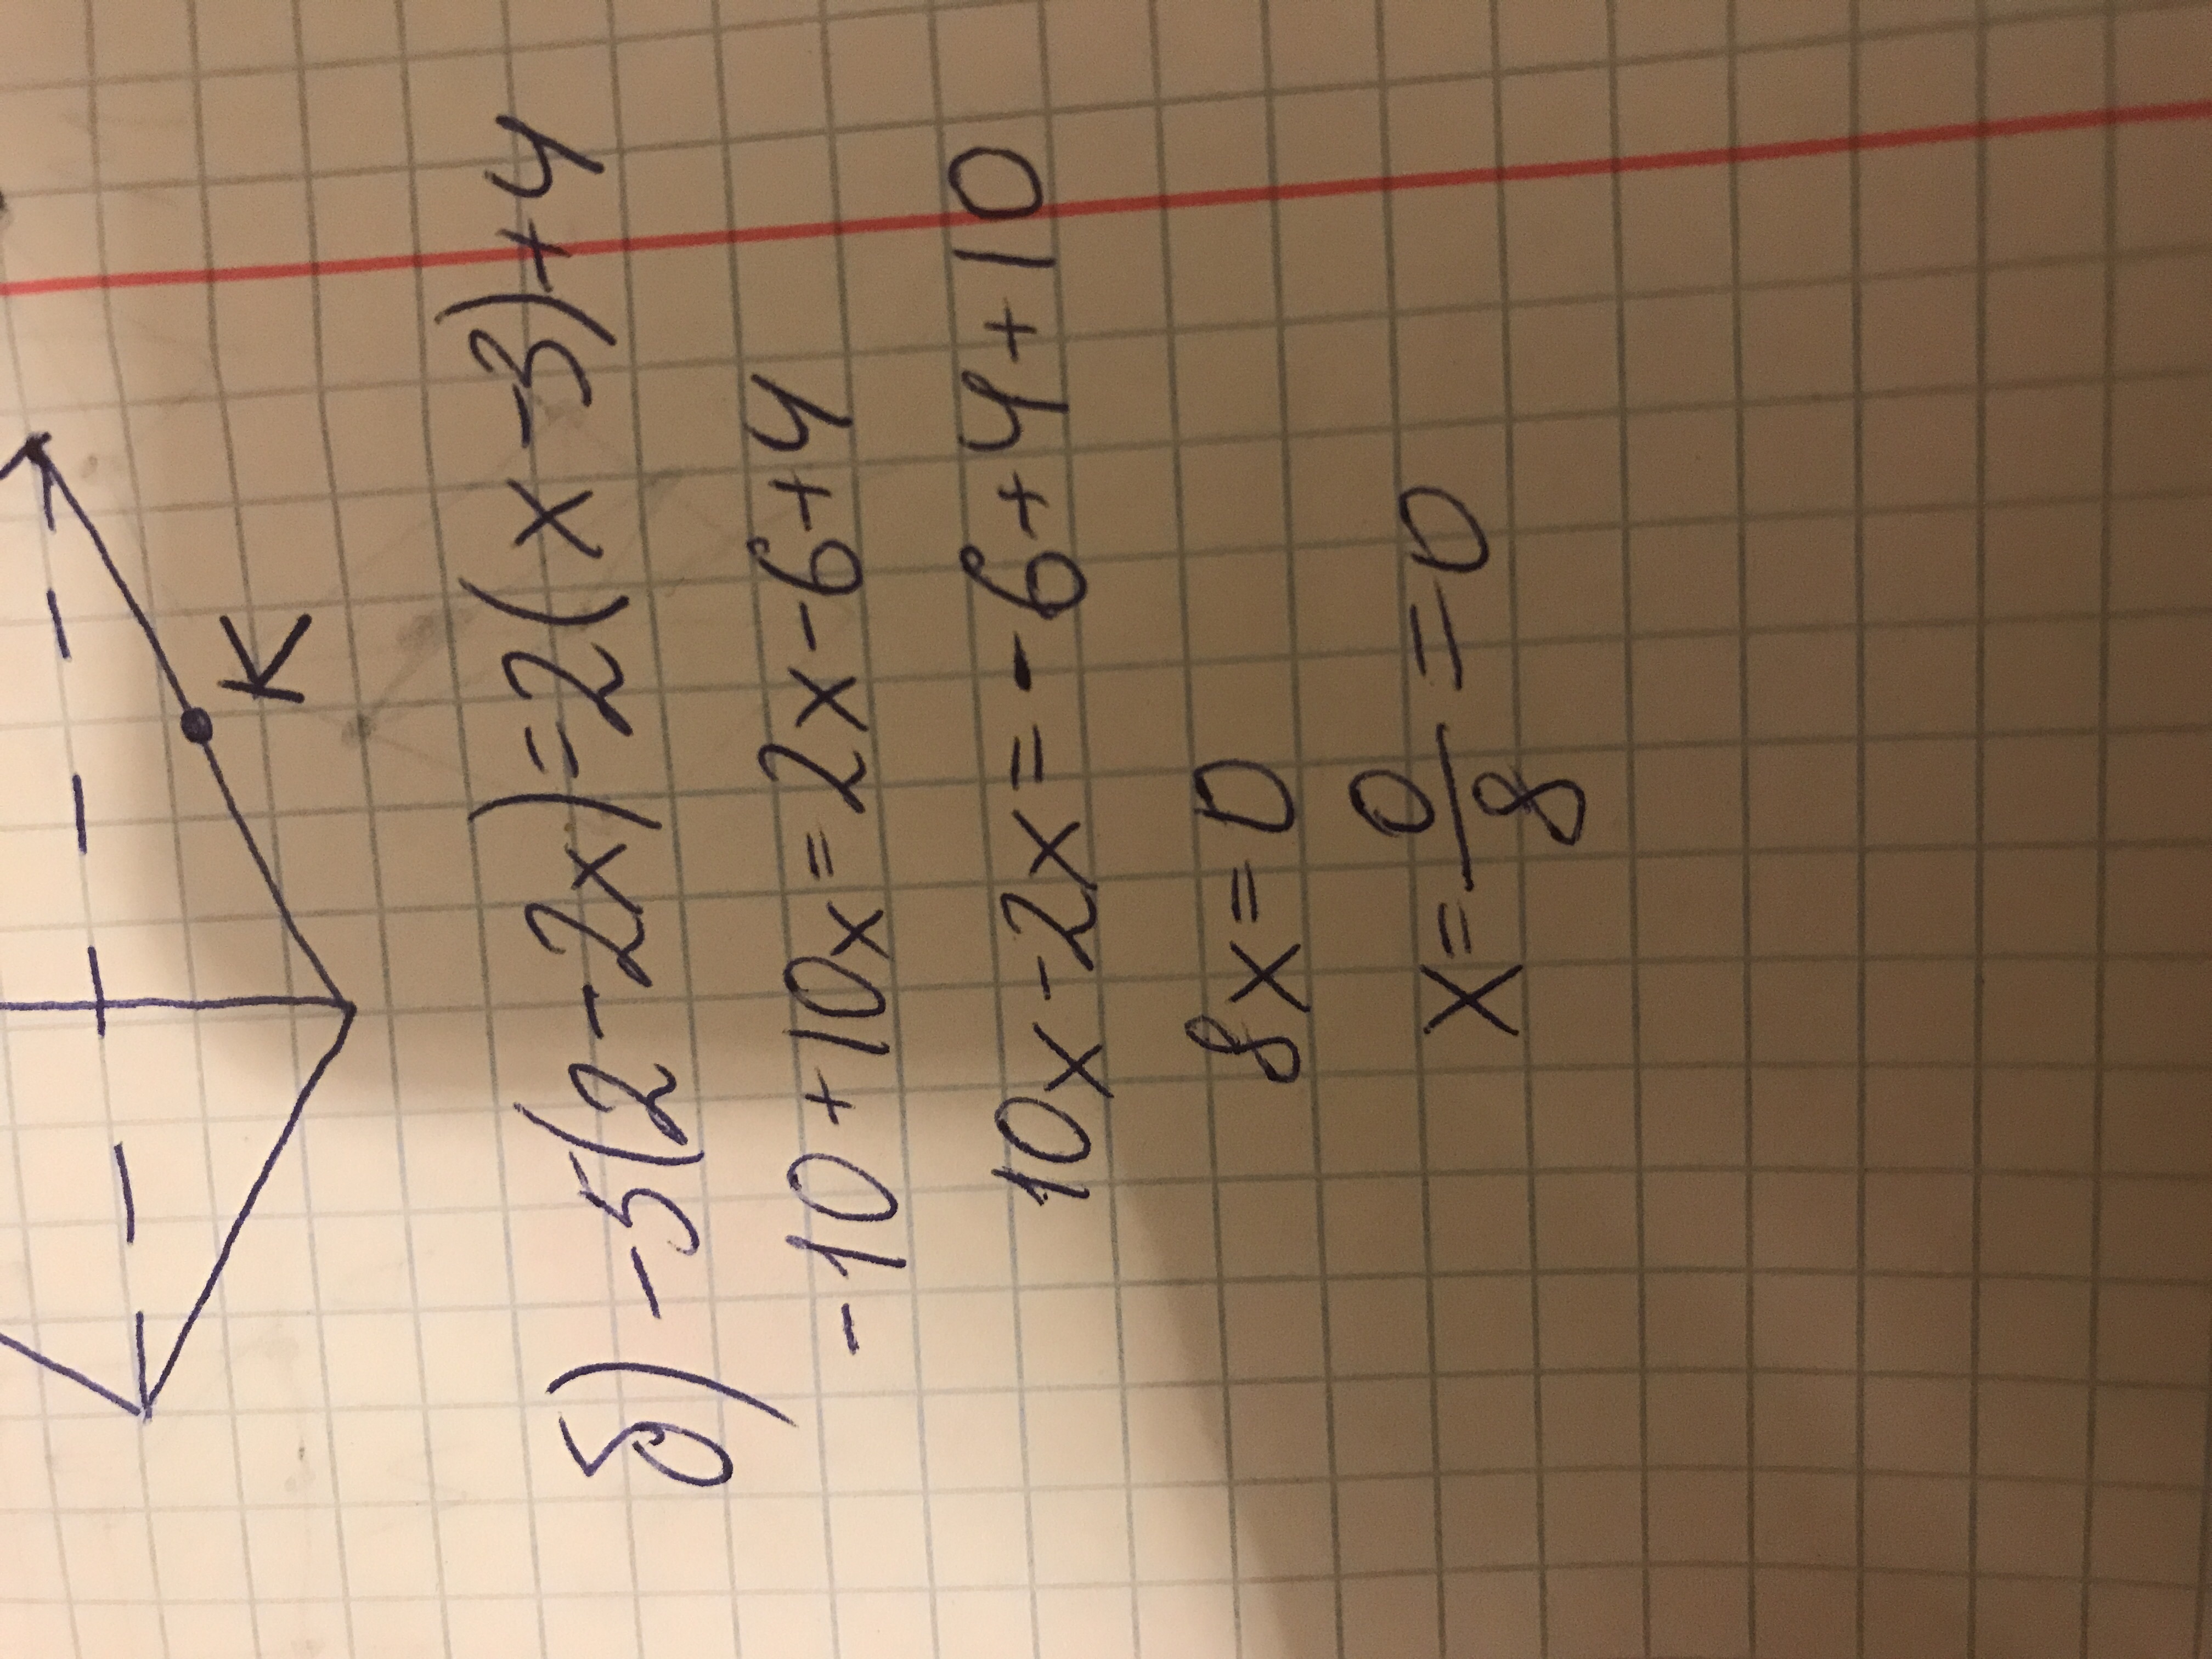 K
б) -5(2-2x)=2(x-3)+4
-10+10x=2x-6+4
10x-2x=-6+4+10
8x=0
x=0/8=0